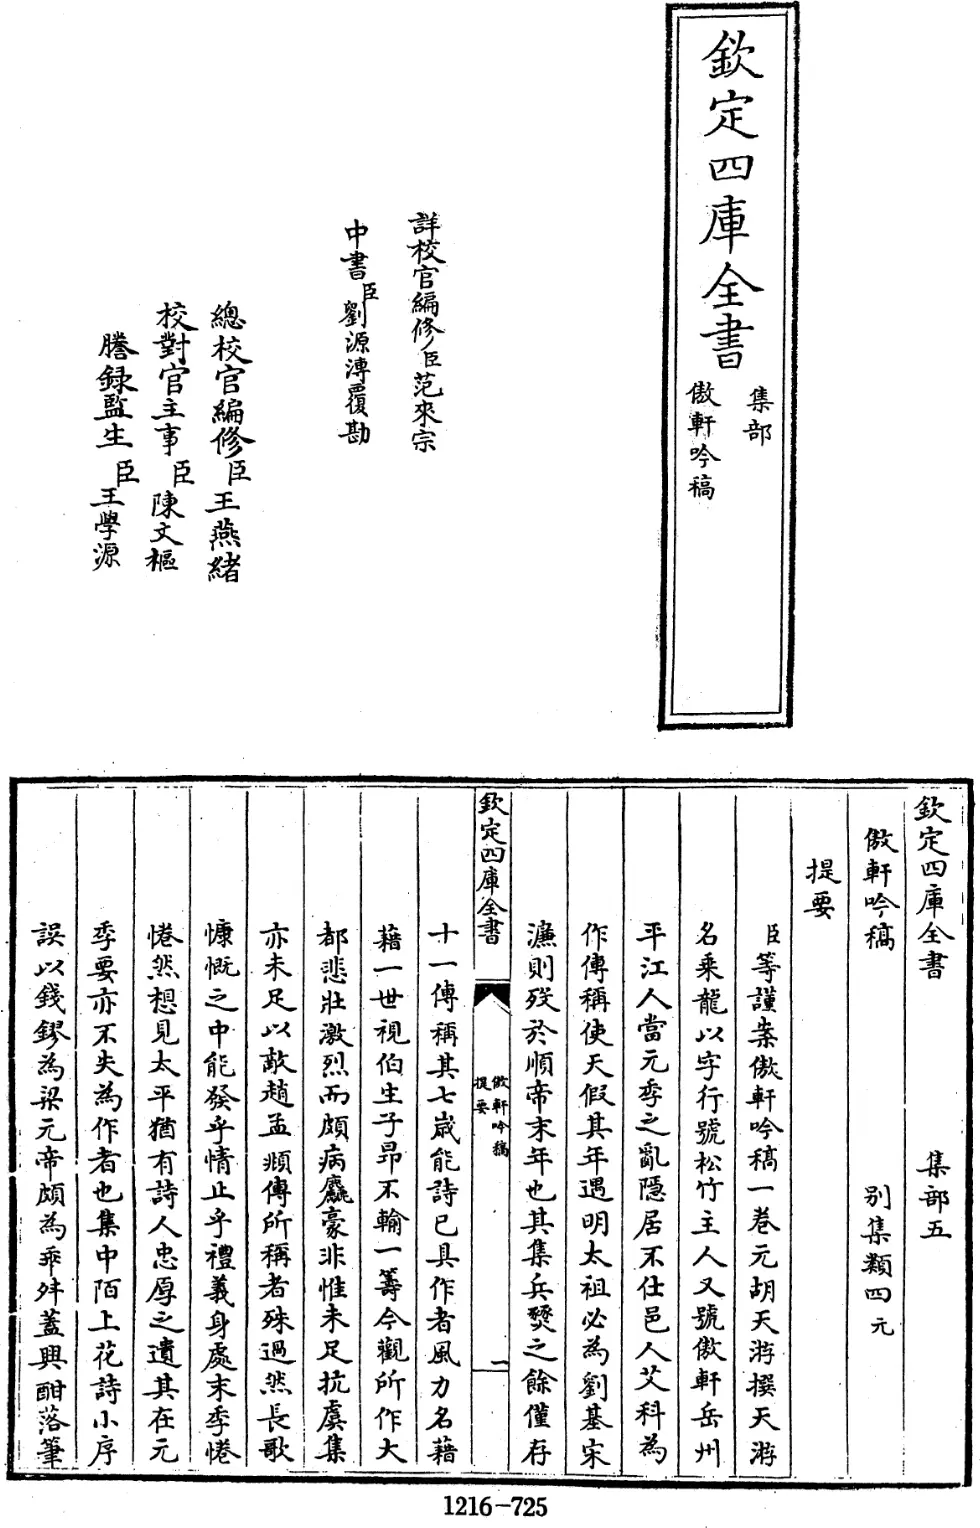 欽定四庫全書
集部
傲軒吟稿
詳校官編修臣范來宗
中書臣劉源溥覆勘
總校官編修臣王燕緒
校對官主事臣陳文樞
謄錄監生臣王學源
欽定四庫全書 集部五
傲軒吟稿 别集類四元
提要
臣等謹案傲軒吟稿一卷元胡天游撰天游
名乘龍以字行號松竹主人又號傲軒岳州
平江人當元季之亂隱居不仕邑人艾科為
作傳稱使天假其年遇明太祖必為劉基宋
濂則歿於順帝末年也其集兵燹之餘僅存
欽定四庫全書
傲軒吟稿
提要
一
十一傳稱其七歲能詩已具作者風力名藉
藉一世視伯生子昂不輸一籌今觀所作大
都悲壯激烈而頗病麤豪非惟未足抗虞集
亦未足以敵趙孟頫傳所稱者殊過然長歌
慷慨之中能發乎情止乎禮義身處末季惓
惓然想見太平猶有詩人忠厚之遺其在元
季要亦不失為作者也集中陌上花詩小序
誤以錢鏐為梁元帝頗為乖舛蓋興酣落筆
1216-725